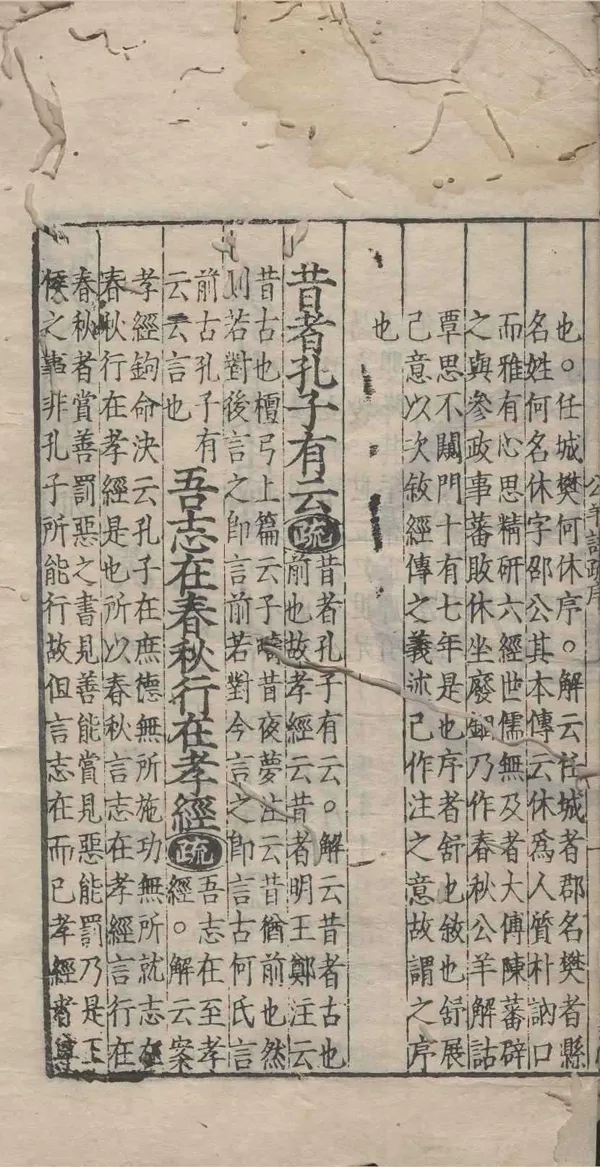 公羊註疏序
也。任城樊何休序。解云任城者郡名樊者縣
名姓何名休字邵公其本傳云休爲人質朴訥口
而雅有心思精研六經世儒無及者大傅陳蕃辟
之與參政事蕃敗休坐廢錮乃作春秋公羊解詁
覃思不闚門十有七年是也序者舒也敘也舒展
己意以次敘經傳之義述己作注之意故謂之序
也
昔者孔子有云疏昔者孔子有云。解云昔者古也
前也故孝經云昔者明王鄭注云
昔古也檀弓上篇云子疇昔夜夢注云昔猶前也然
則若對後言之即言前若對今言之即言古何氏言
前古孔子有
云云言也
吾志在春秋行在孝經疏吾志在至孝
經。解云案
孝經鉤命決云孔子在庶德無所施功無所就志在
春秋行在孝經是也所以春秋言志在孝經言行在
春秋者賞善罰惡之書見善能賞見惡能罰乃是王
侯之事非孔子所能行故但言志在而已孝經者尊